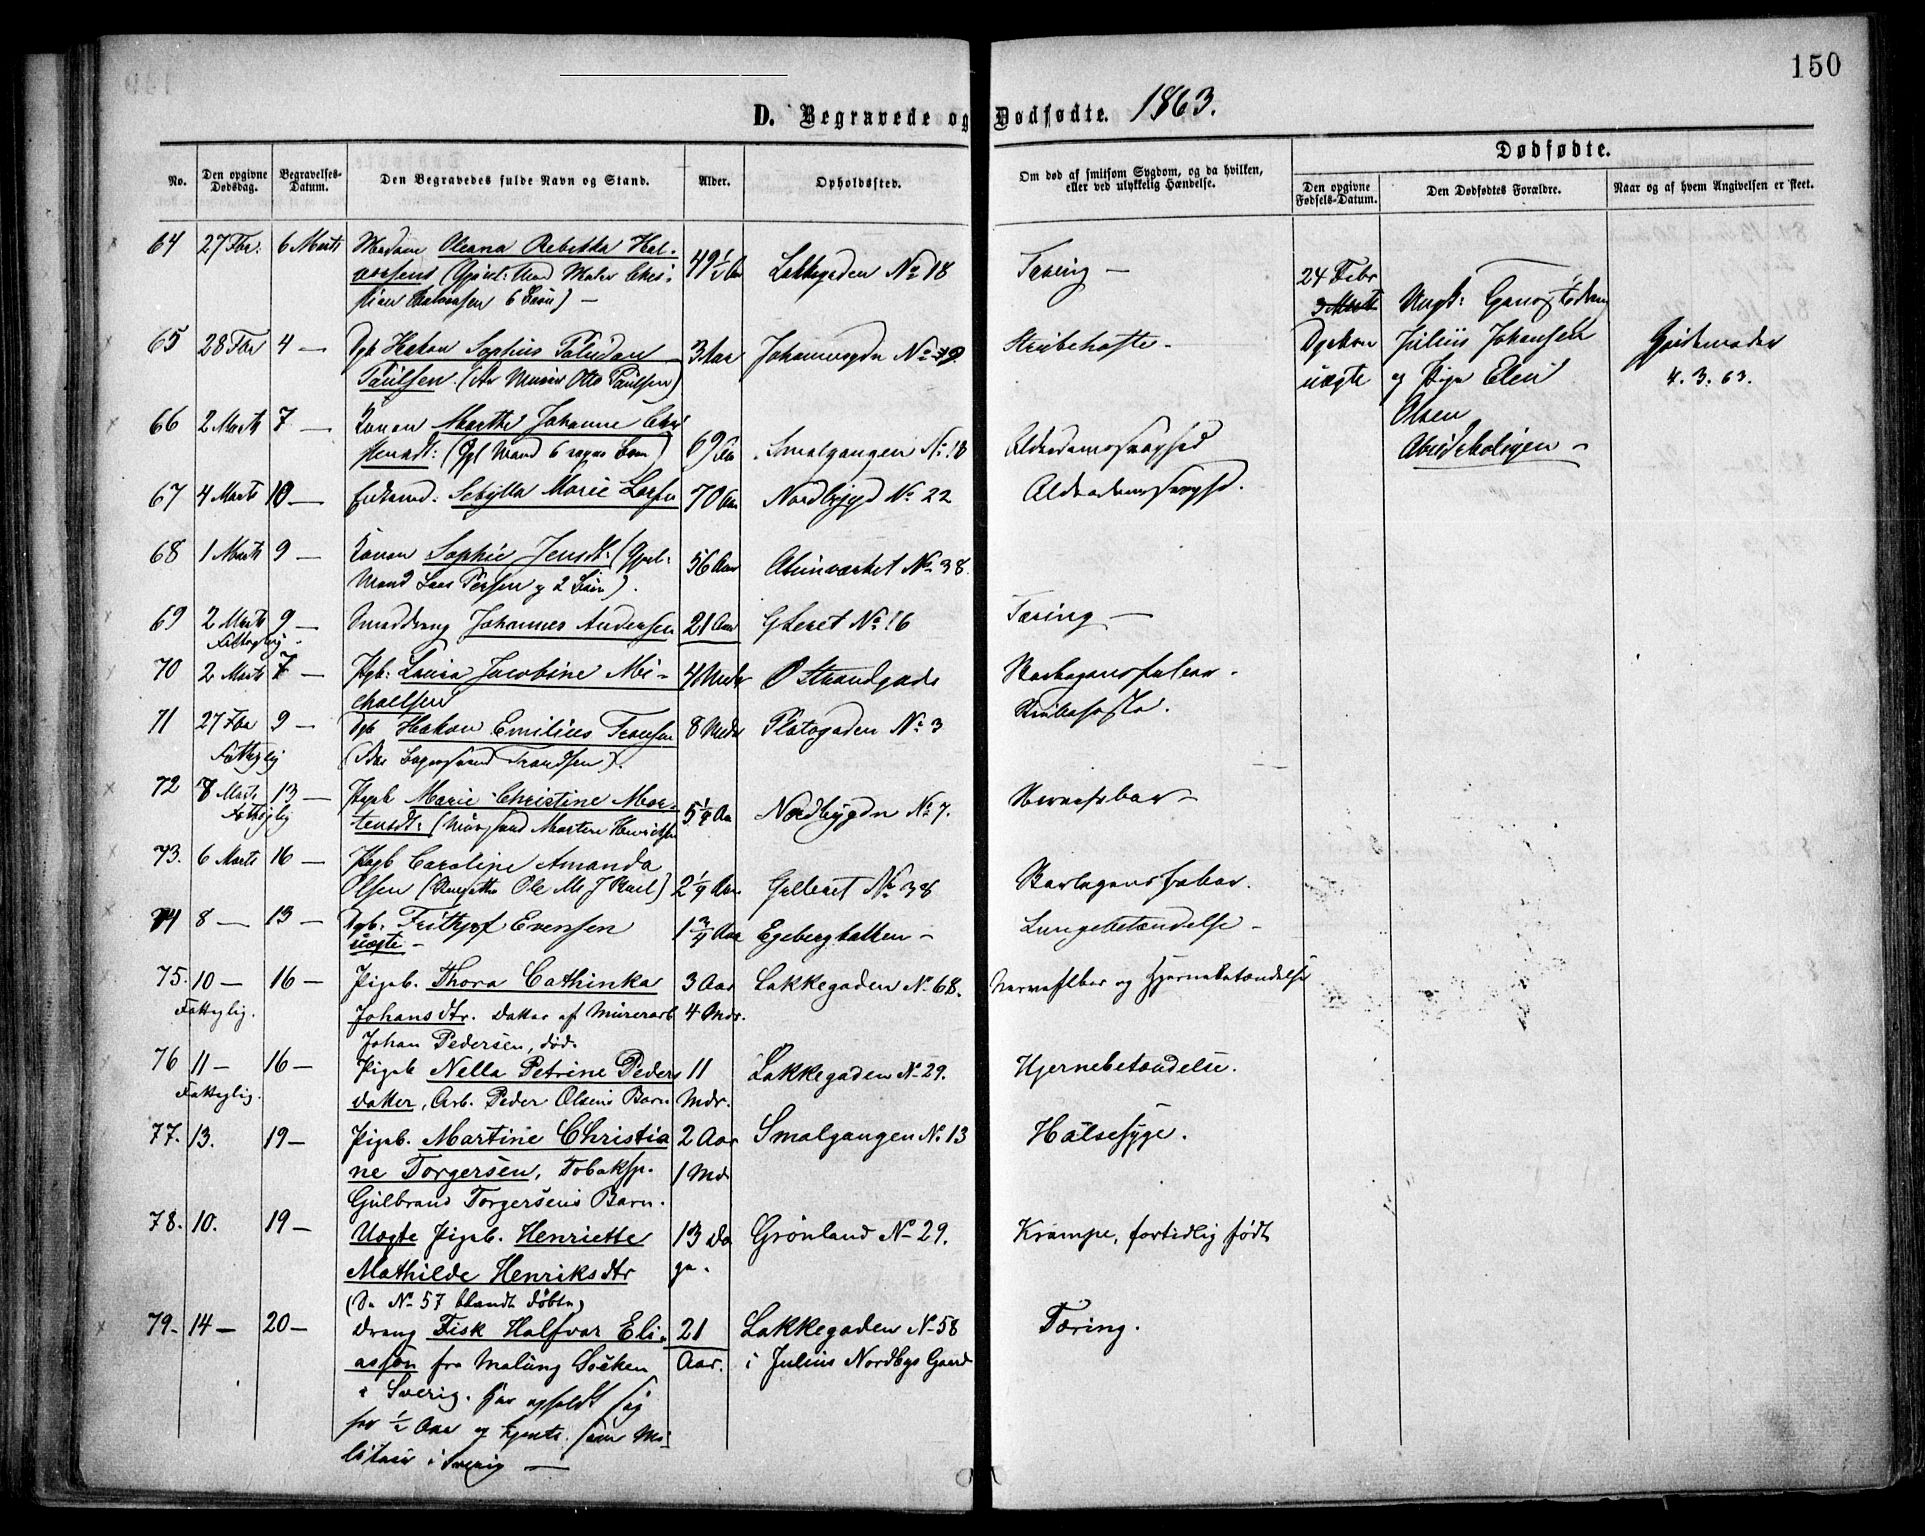 150
D. Begravede og Dødfødte. 1863.
No.
Den opgivne Dødsdag.
Begravelses-Datum.
Den Begravedes fulde Navn og Stand.
Alder.
Opholdssted.
Om død af smitsom Sygdom, og da hvilken, eller ved ulykkelig Hændelse.
Dødfødte.
Den opgivne Fødsels-Datum.
Den Dødfødtes Forældre.
Naar og af hvem Angivelsen er skeet.
64 27 Fbr. 6 Marts Madam Oleana Rebekka Hal- 49 1/2 Aar Lakkegaden No 18 Tæring —
vorsens
6 Børn) —
24 Febr
3 Marts
Drgebarn
uægte
Julius Johansen
og Pige Elen
Olsen
Gjordemoder
4. 3. 63.
65 28 Fbr 4 — Dgb Hakon Sophus Paludan 3 Aar Johannesgdn No 19 Strubehoste —
Paulsen (Otto Paulsen)
66 2 Marts 7 — Konen Marthe Johanne Chri 69 Aar Smalgangen No 13 Alderdomssvaghed
67 4 Marts 10 — Enkemd. Sebylla Marie Larsen 70 Aar Nordbygd No 22 Alderdomssvaghd.
68 1 Marts 9 — Konen Sophie Jensdt: (Gjvel- 56 Aar No 38
Mand Lars og 2 Børn).
69 2 Marts 9 — Smeddreng Johannes Andersen 21 Aar Gleret No 16 Tæring —
Fattiglig
70 2 Marts 7 — Pgb: Laura Jacobine Mi- 4 Mdr O Strandgade Skarlagensfeber —
chaelsen
71 27 Fbr 9 — Dgb Hakon Emilius Transen 8 Mdr Platogaden No 3 Strubehoste.
Fattiglig
72 8 Marts 13 — Pgb Marie Christine Mor- 5 1/4 Aar Nordbygdn No 7. Nervefeber —
Fattiglig tensdt: Morten Henriksen
73. 6 Marts 16 — Pgb Caroline Amanda
Olsen 2 1/4 Aar Gelleret No 38 Skarlagensfeber.
74 8 — 13 — Dgb. Frithjof Evensen 1 3/4 Aar Egebergbakken — Lungebetændelse —
uægte —
75. 10 — 16 — Pigeb. Thora Cathinka 3 Aar Lakkegaden No 68. Nervefeber og Hjernebetændelse
Fattiglig. Johansdtr. Datter af Murerarb 4 Mdr.
Johan Pedersen, død.
76 11 — 16 — Pigeb Nella Petrine Peders 11 Lakkegaden No 29. Hjernebetændelse.
Fattiglig. datter, Arb. Peder Olsens Barn Mdr.
77. 13. 19 — Pigeb. Martine Christia 2 Aar Smalgangen No 13 Halsesyge.
ne Torgersen, Tobaksp. 1 Md
Gulbrand Torgersens Barn.
78. 10. 19 — Uægte Pigeb. Henriette 13 Da Grønland No 29. Krampe, fortidlig født
Mathilde Henriksdtr ge.
(Se No 57 blandt døbte)
79. 14 — 20 — Dreng Fisk Halfvar Eli- 21 Lakkegaden No 58 Tæring.
asson fra Malung Socken Aar. i Julius Nordbys Gaard
i Sverig. Har opholdt sig
her 1/2 Aar og tjente som Mi-
litair i Sverig —